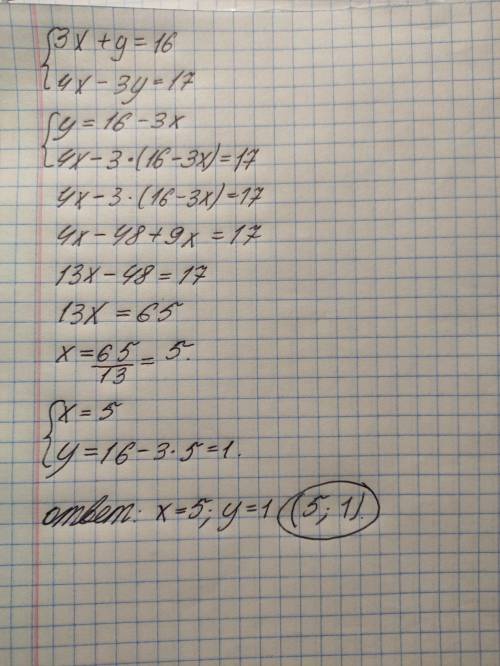 {3x + y = 16
4x - 3y = 17
{y = 16 - 3x
4x - 3 · (16 - 3x) = 17
4x - 3 · (16 - 3x) = 17
4x - 48 + 9x = 17
13x - 48 = 17
13x = 65
x = 65/13 = 5.
{x = 5
y = 16 - 3 · 5 = 1.
ответ: x = 5; y = 1 (5; 1).